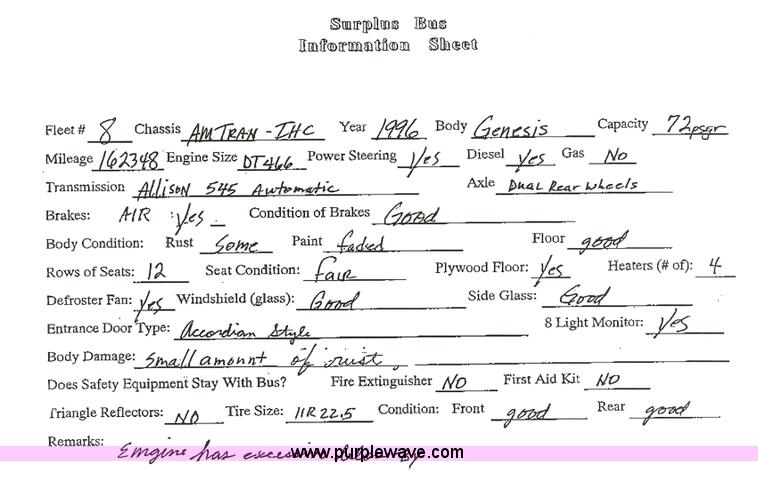 Surplus Bus
Information Sheet
Fleet # 8 Chassis AMTRAN - IHC Year 1996 Body Genesis Capacity 72 psgr
Mileage 162348 Engine Size DT466 Power Steering Yes Diesel yes Gas No
Transmission Allison 545 Automatic Axle Dual Rear Wheels
Brakes: AIR Yes Condition of Brakes Good
Body Condition: Rust Some Paint faded Floor good
Rows of Seats: 12 Seat Condition: fair Plywood Floor: Yes Heaters (# of): 4
Defroster Fan: Yes Windshield (glass): Good Side Glass: Good
Entrance Door Type: Accordian Style 8 Light Monitor: Yes
Body Damage: Small amount of rust.
Does Safety Equipment Stay With Bus? Fire Extinguisher NO First Aid Kit NO
Triangle Reflectors: NO Tire Size: 11R 22.5 Condition: Front good Rear good
Remarks: Emgine has excessive
www.purplewave.com